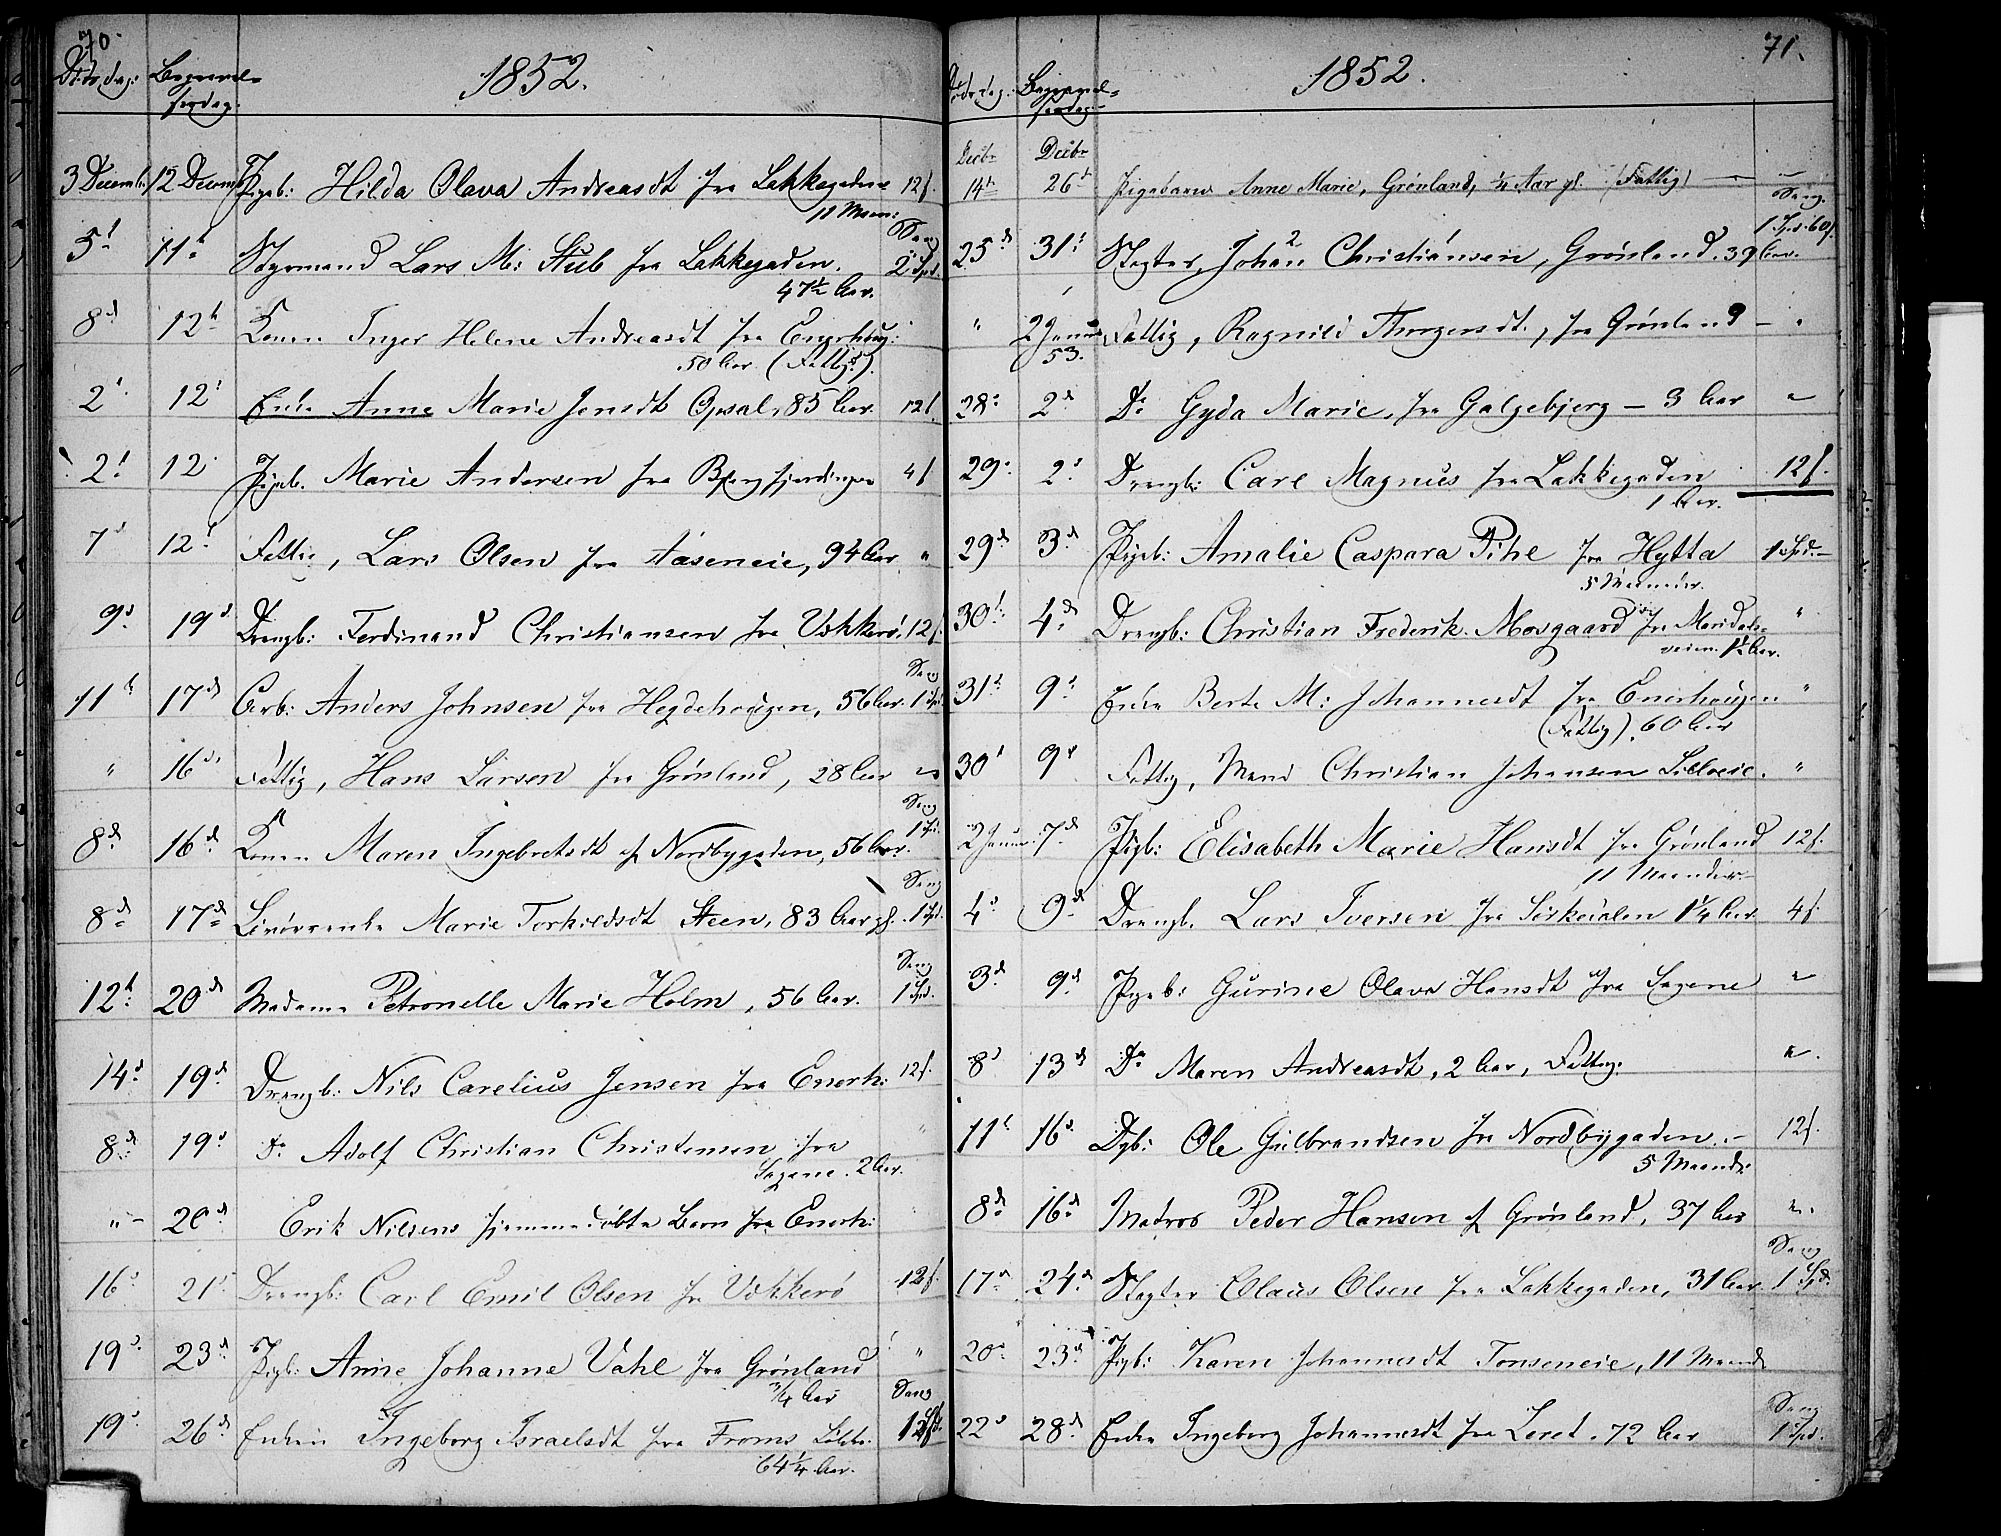 70.
Døds dag: Begravel-
sesdag:
1852.
3 Decemb: 12 Decemb Pigeb: Hilda Olava Andreasdt fra Lakkegaden 12 s.
11 Maan:
Sang
5t 11t Lars M: Stub fra Lakkegaden. 2 Spd.
47½ Aar.
8d 12t Konen Inger Helene Andreasdt fra Enerhaug:
50 Aar. (Fattig).
2d 12t Enke Anne Marie Jensdt Opsal, 85 Aar. 12 s
2d 12 Pigeb. Marie Andersen fra Bjergfjerdingen 4 s
7d 12t Fattig, Lars Olsen fra Aaseneie, 94 Aar "
9d 19d Drengb: Ferdinand Christiansen fra Vækkerø, 12 s.
Sang
11t 17d Arb: Anders Johnsen fra Hegdehougen, 56 Aar. 1 Spd
" 16d Fattig, Hans Larsen fra Grønland, 28 Aar "
Sang
8d 16d Konen Maren Ingebretsdt af Nordbygaden, 56 Aar. 1 Spd.
Sang
8d 17d Marie Torkildsdt Steen, 83 Aar gl. 1 Spd.
Sang
12t 20d Madame Petronelle Marie Holm, 56 Aar. 1 Spd.
14d 19d Drengb: Nils Carelius Jensen fra Enerh: 12 s.
8d 19d Do Adolf Christian Christensen fra "
Sagene. 2 Aar.
" - 20d Erik Nilsens hjemmedøbte Barn fra Enerh: "
16d 21d Drengb: Carl Emil Olsen fr Vækkerø 12 s.
19d 23d Pigb: Anne Johanne Vahl fra Grønland "
¾ Aar
Sang
19d 26d Enken Ingeborg Israelsdt fra Froms Løkke: 1 Spd.
64¼ Aar.
71.
Døds dag: Begravel-
sesdag:
1852.
Decbr Decbr
14t 26t Pigebarnet Anne Marie, Grønland, ¼ Aar gl. (Fattig) —
Sang.
1 Spd. 60 s.
25d 31t Slagter, Johan Christiansen, Grønland. 39 Aar.
" 2 Januar Fattig, Ragnild Thorgersdt., fra Grønland — "
53.
28d 2d Do Gyda Marie, fra Galgebjerg — 3 Aar "
29d 2d Drengb: Carl Magnus fra Lakkegaden 12 s.
1 Aar.
29d 3d Pigeb: Amalie Caspara Pihl fra Hytta 1 Spd. —
5 Maaneder.
30t 4d Drengb: Christian Frederik Mosgaard fra Maridals-
veien. 1½ Aar. "
31t 9d Enke Berte M: Johannesdt fra Enerhougen "
(Fattig). 60 Aar
30t 9d Fattig, Mand Christian Johansen "
2 Januar 7d Pigb: Elisabeth Marie Hansdt fra Grønland 12 s.
11 Maander.
4d 9d Drengb. Lars Iversen fra Sørkedalen 1¼ Aar 4 s.
3d 9d Pigeb: Gurine Olava Hansdt fra Sagene "
8d 13d Do Maren Andreasdt, 2 Aar, Fattig. "
11t 16d Dgb: Ole Gulbrandsen fra Nordbygaden. — 12 s.
5 Maandr
8d 16d Matros Peder Hansen af Grønland, 37 Aar "
Sang
17d 24d Slagter Olaus Olsen fra Lakkegaden, 31 Aar. 1 Spd.
20d 23d Pigb: Karen Johannesdt Tonseneie, 11 Maand
Sang
22d 28d Enke Ingeborg Johannesdt fra Leret. 72 Aar 1 Spd.